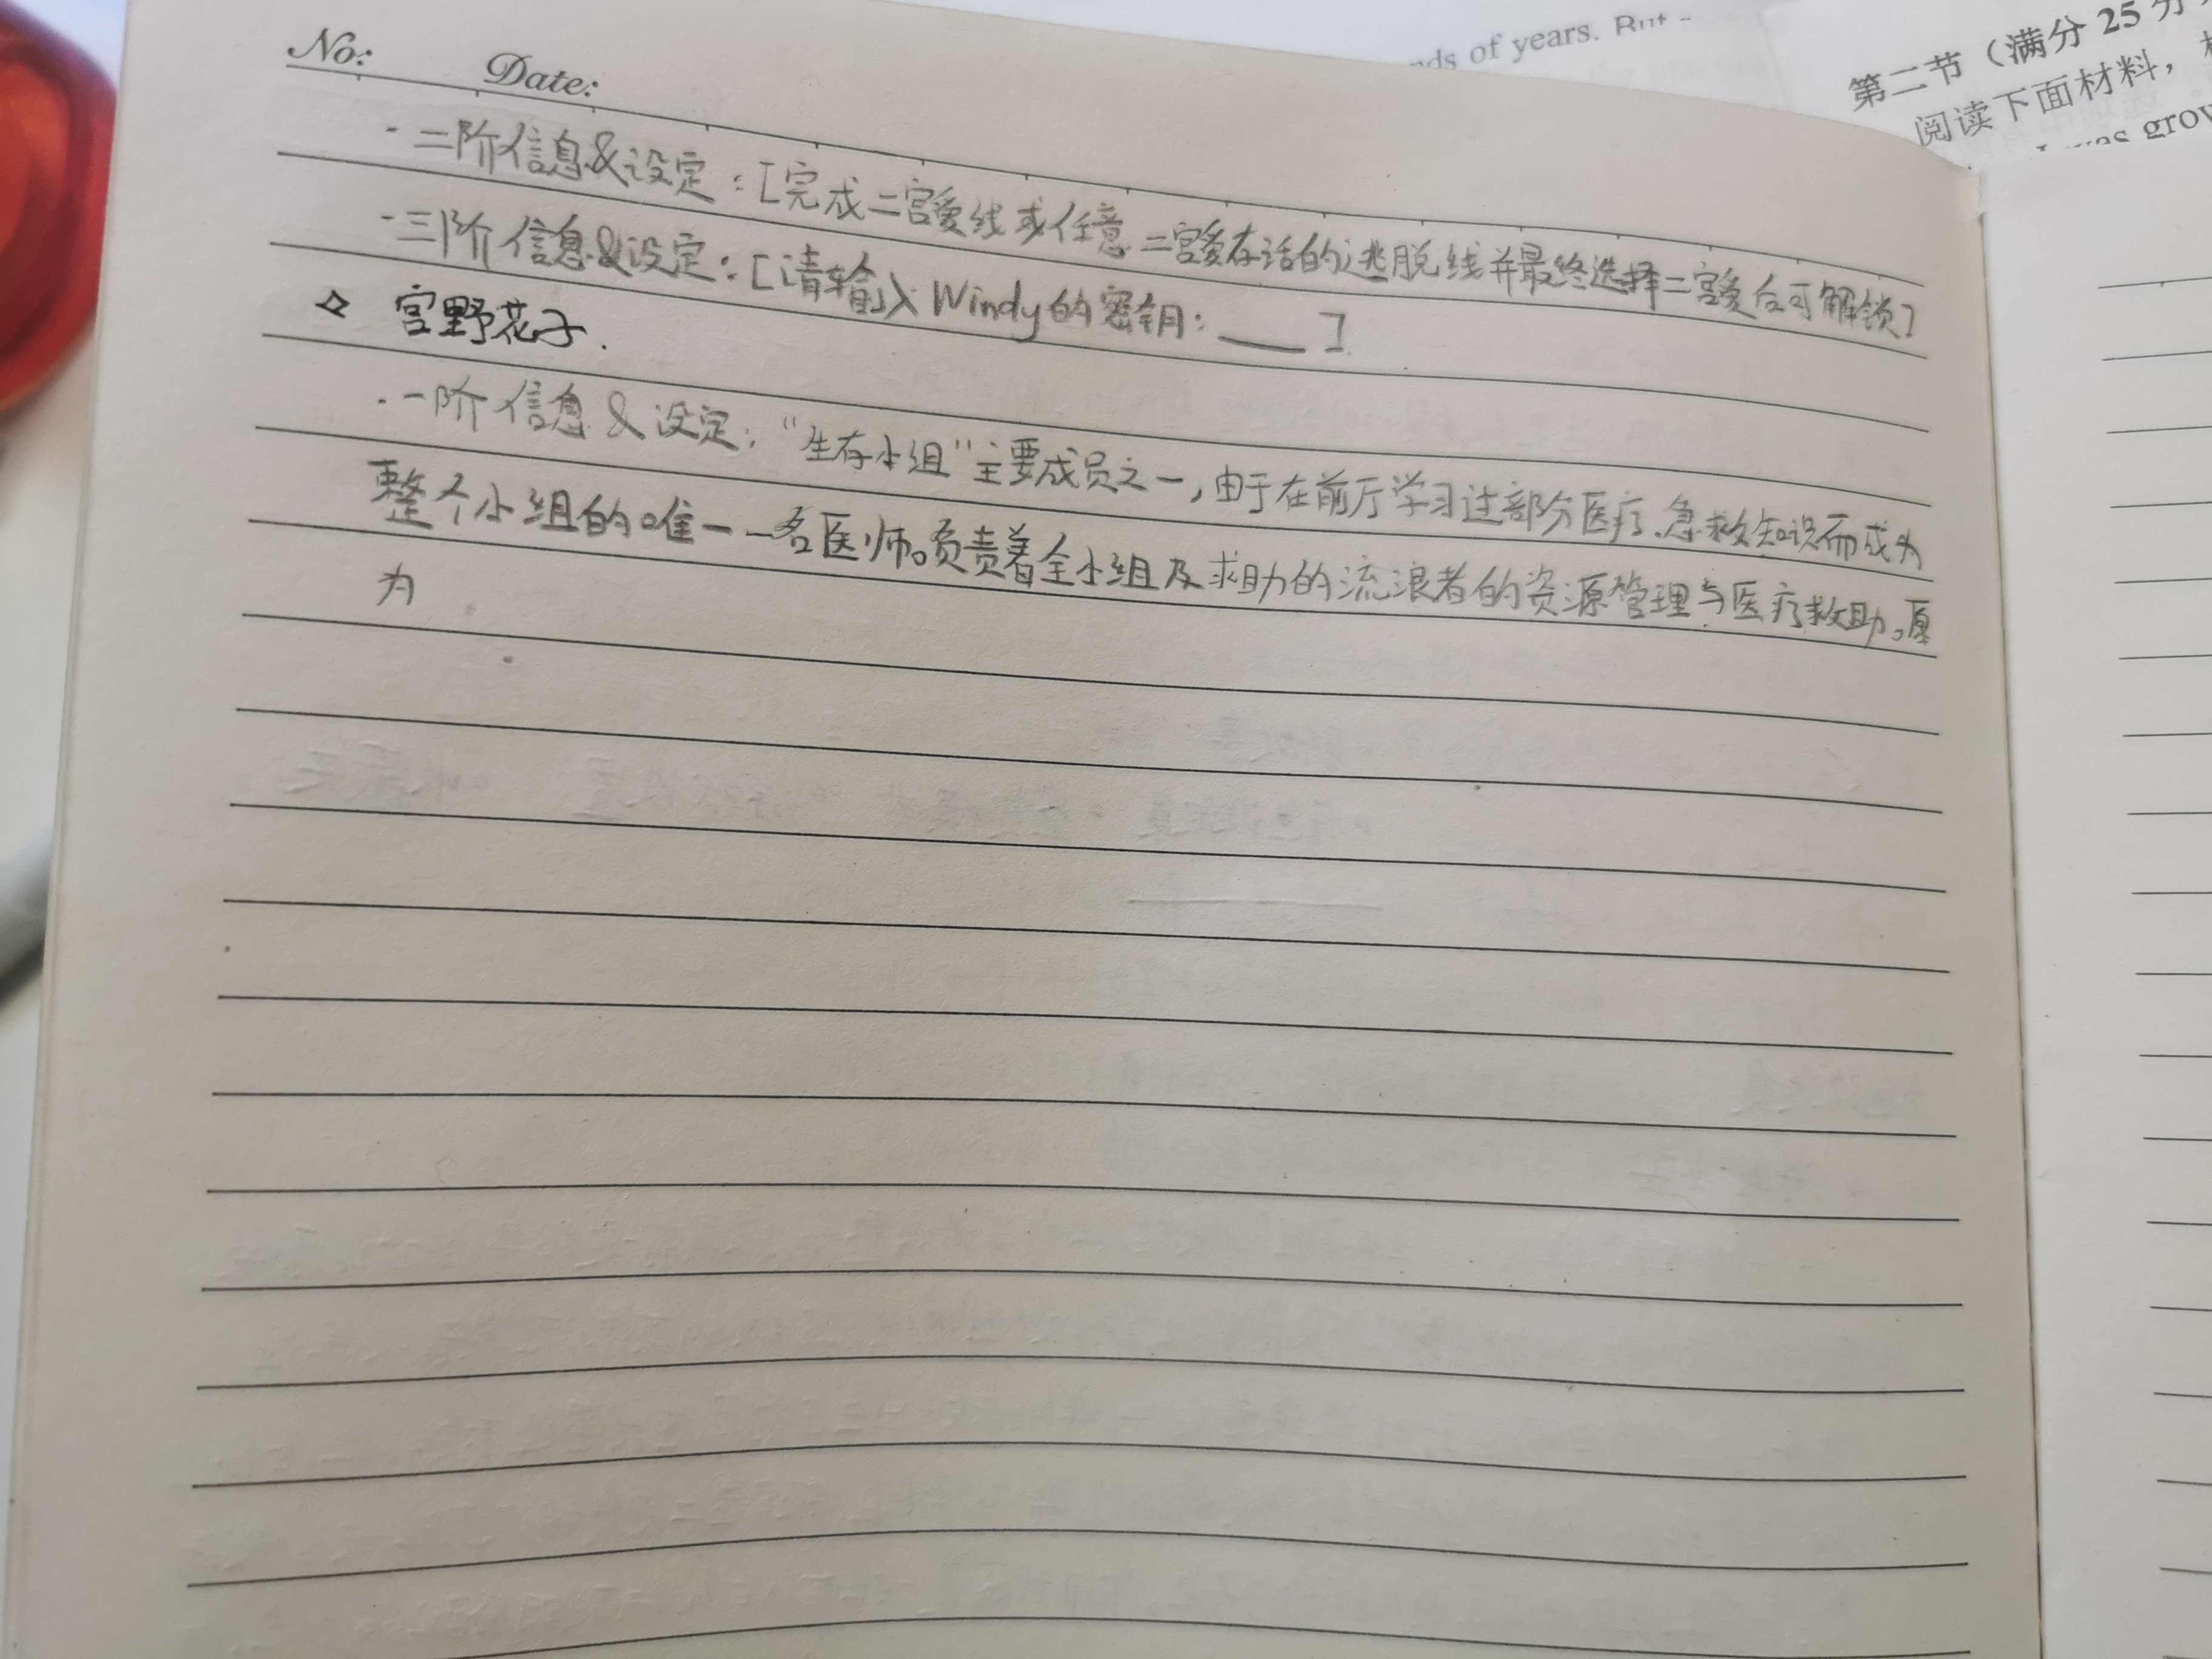 nds of years. But
第二节（满分 25 分
阅读下面材料，
was grow
No: Date:
·二阶信息&设定：[完成二宫爱线或任意二宫爱存活的逃脱线并最终选择二宫爱后可解锁]
·三阶信息&设定：[请输入Windy的密钥：___]
◇ 宫野花子.
·一阶信息&设定：“生存小组”主要成员之一，由于在前厅学习过部分医疗、急救知识而成为
整个小组的唯一一名医师。负责着全小组及求助的流浪者的资源管理与医疗救助。原
为